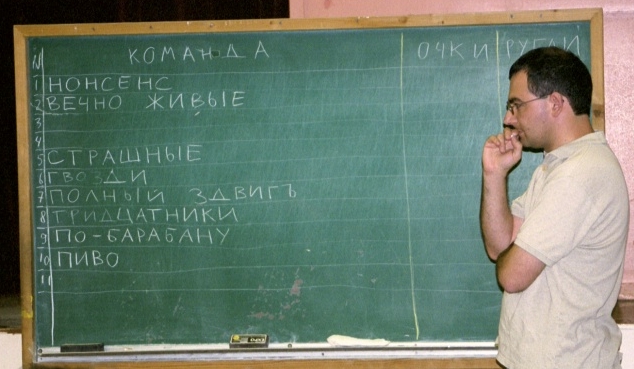 N КОМАНДА ОЧКИ РУБЛИ
1 НОНСЕНС
2 ВЕЧНО ЖИВЫЕ
3
4
5 СТРАШНЫЕ
6 ГВОЗДИ
7 ПОЛНЫЙ ЗДВИГЪ
8 ТРИДЦАТНИКИ
9 ПО-БАРАБАНУ
10 ПИВО
11